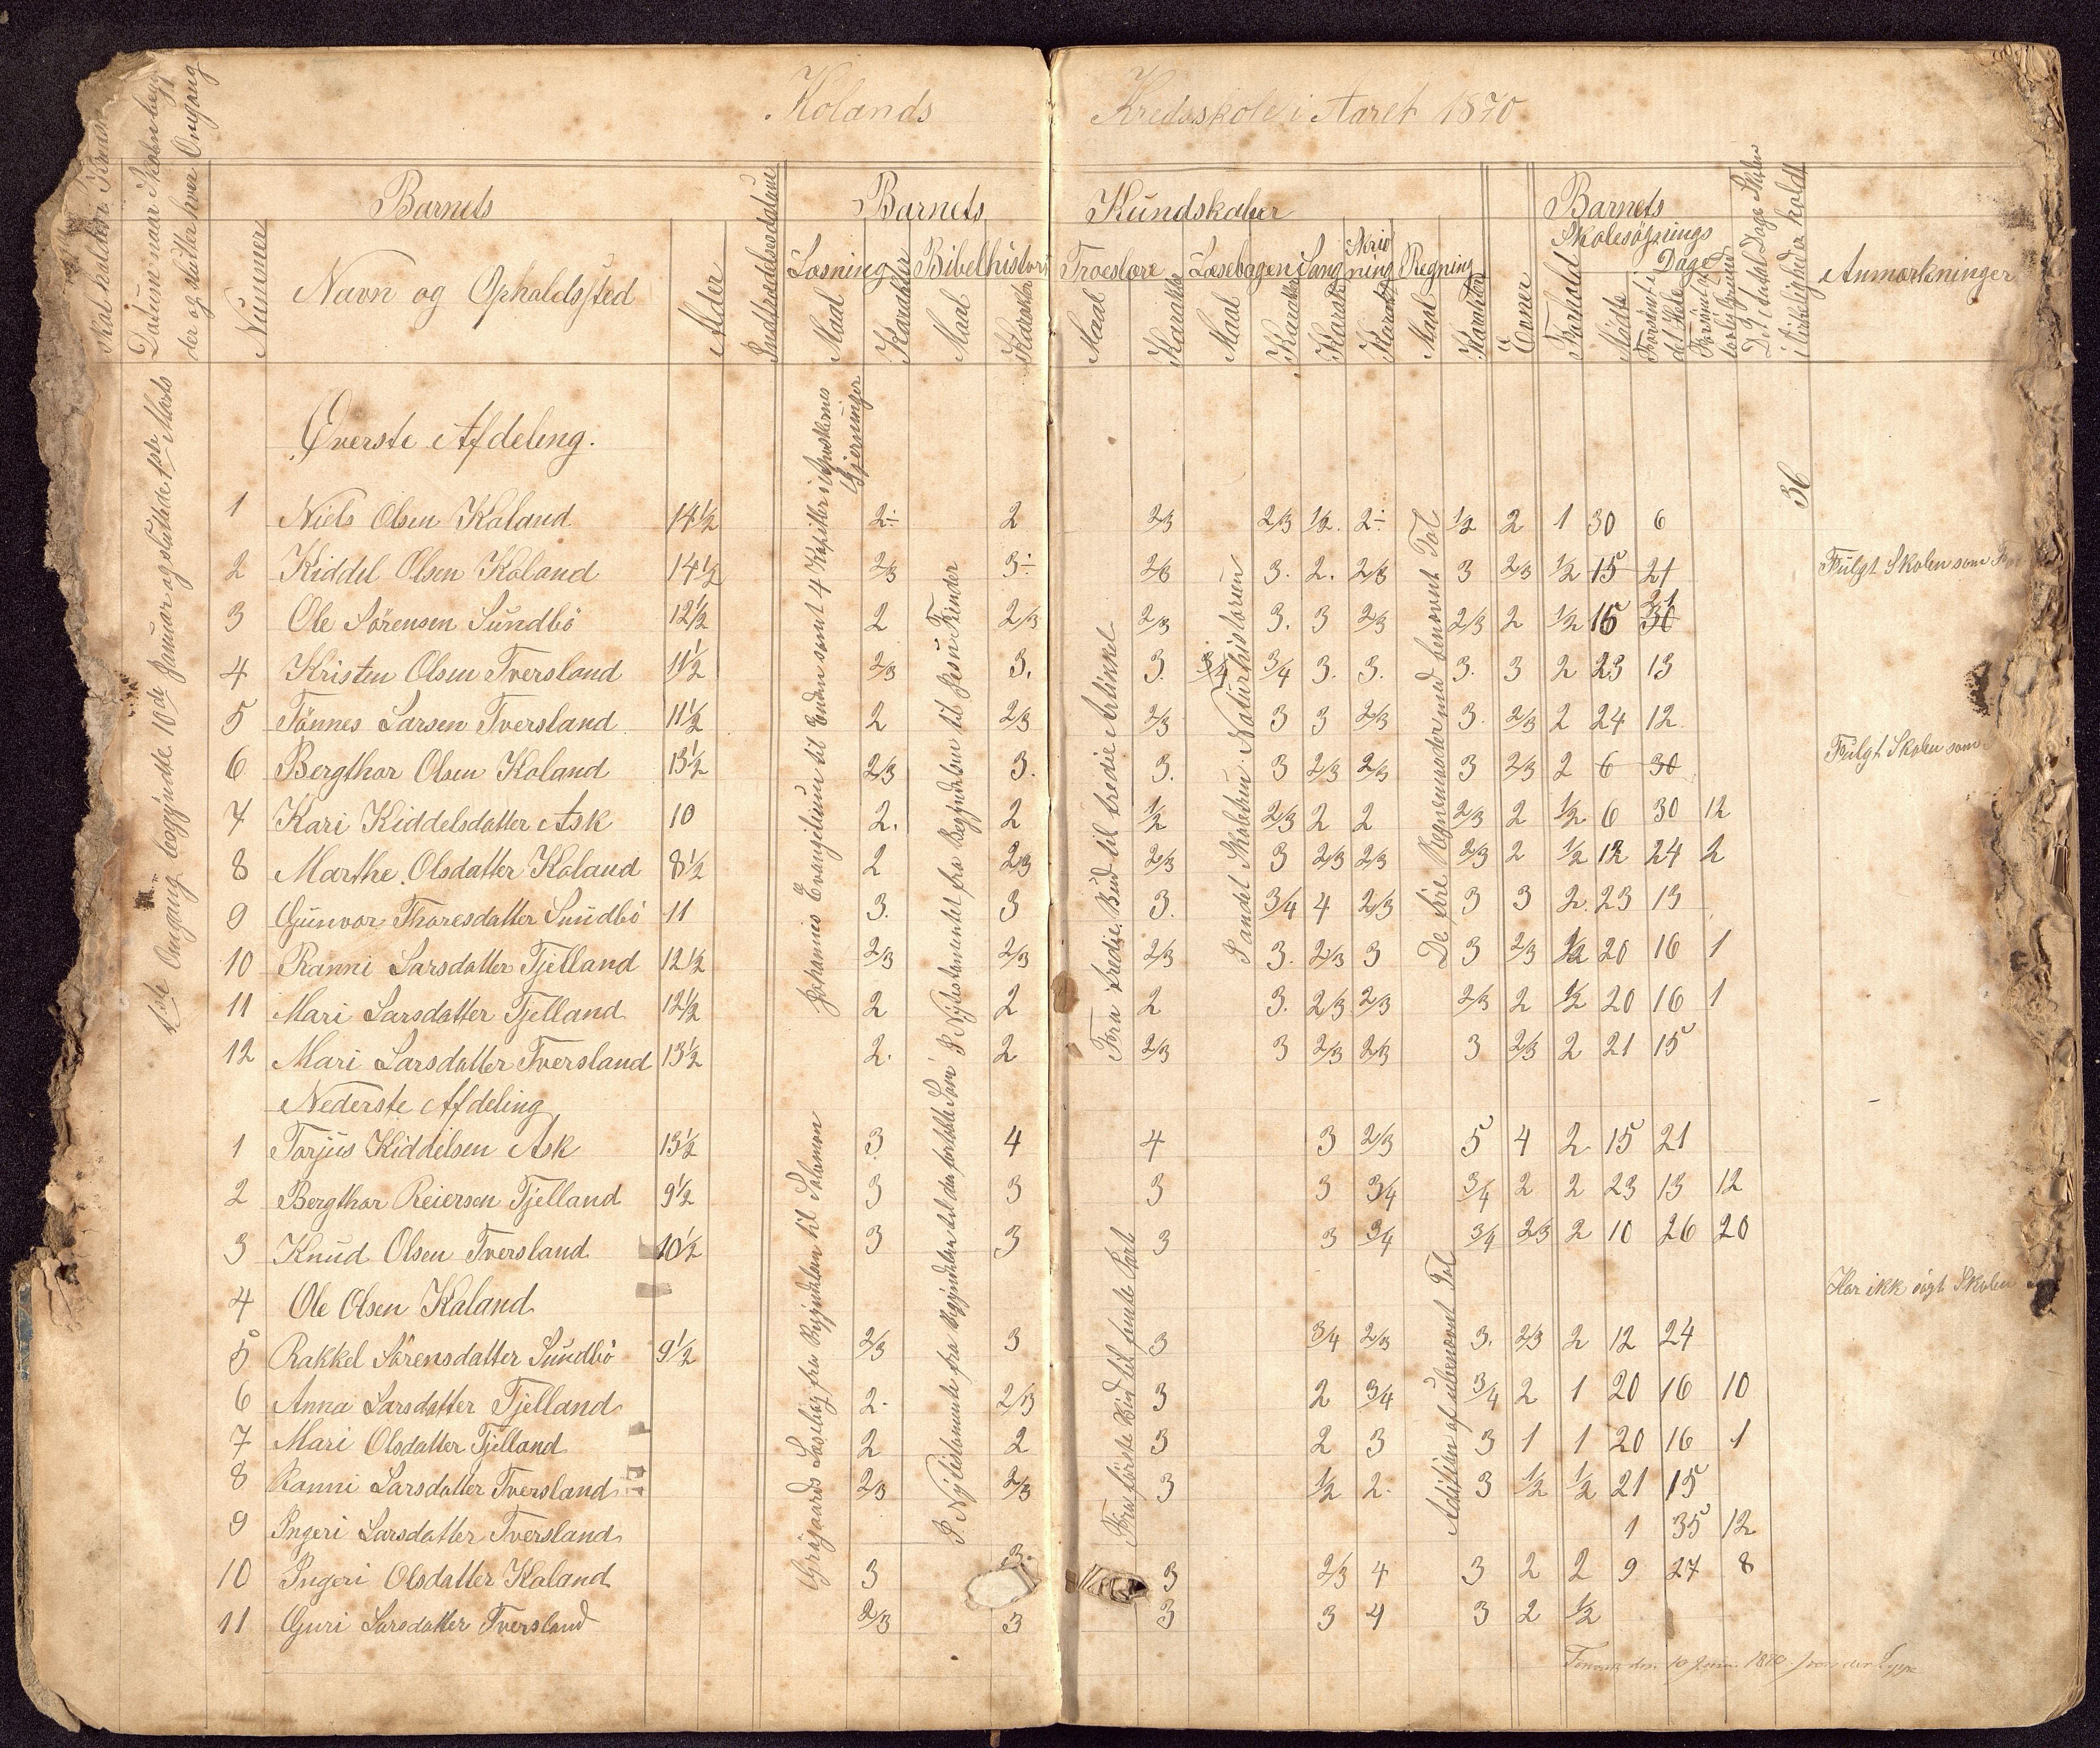 Kolands Kredsskole i Aaret 1870
Datum naar Skolen begyn
der og slutter hver Omgang
Nummer
Barnets
Navn og Opholdssted
Alder
Indtrædelsesdatum
Barnets Kundskaber
Læsning
Maal
Karakter
Bibelhistorie
Maal
Karakter
Troeslære
Maal
Karakter
Læsebogen
Maal
Karakter
Sang
Karakter
Skriv
ning
Karakter
Regning
Maal
Karakter
Evner
Forhold
Barnets
Skolesøgnings
Dage
Mødte
Forsømt i
det Hele
Det Antal Dage Skolen
i Virkelighed er holdt
Anmærkninger
1ste Omgang begyndte 10de Januar og sluttede Marts
Johannes Evangelium til Enden samt 4 Kapitler i Apostlernes
Gjerninger
I Nytestamentet fra Begyndelsen til Jesu Fiender
Fra tredje Bud til tredie Artikkel
P. Andet Skoletrin Naturhistorien
De fire Regnemaader med benævnt Tal
36
Øverste Afdeling.
1 Niels Olsen Kaland 14½ 2÷ 2 2/3 2/3 ½. 2÷ ½ 2 1 30 6
2 Kiddel Olsen Kaland 14½ 2/3 3÷ 2/3 3. 2. 2/3 3 2/3 ½ 15 21 Fulgt Skolen som
3 Ole Sørensen Sundbø 12½ 2 2/3 2/3 3. 3 2/3 2/3 2 ½ 15 21
4 Kristen Olsen Tversland 11½ 2/3 3. 3. 3/4 3/4 3. 3. 3. 3 2 23 13
5 Tønnes Larsen Tversland 11½ 2 2/3 2/3 3 3 2/3 3. 2/3 2 24 12
6 Bergthor Olsen Koland 13½ 2/3 3. 3. 3 2/3 2/3 3 2/3 2 6 30 Fulgt Skolen som
7 Kari Kiddelsdatter Ask 10 2. 2 ½ 2/3 2 2 2/3 2 ½ 6 30 12
8 Marthe Olsdatter Koland 8½ 2 2/3 2/3 3 2/3 2/3 2/3 2 ½ 12 24 2
9 Gunvor Tharesdatter Sundbø 11 3. 3 3. 3/4 4 2/3 3 3 2. 23 13
10 Ranni Larsdatter Tjelland 12½ 2/3 2/3 2/3 3. 2/3 3 3 2/3 ½ 20 16 1
11 Mari Larsdatter Tjelland 12½ 2 2 2 3. 2/3 2/3 2/3 2 ½ 20 16 1
12 Mari Larsdatter Tversland 13½ 2. 2 2/3 3 2/3 2/3 3 2/3 2 21 15
Nederste Afdeling
Læsebog fra Begyndelsen til Salomon
I Nytestamente fra Begyndelsen til den fortabte Søn
Fra første Bud til femte Part
Addition af ubenævnt Tal
1 Torjus Kiddelsen Ask 13½ 3 4 4 3 2/3 5 4 2 15 21
2 Bergthor Reiersen Tjelland 9½ 3 3 3 3 3/4 3/4 2 2 23 13 12
3 Knud Olsen Tversland 10½ 3 3 3 3 3/4 3/4 2/3 2 10 26 20
4 Ole Olsen Kaland Har ikk søgt Skolen
5 Rakkel Sørensdatter Sundbø 9½ 2/3 3 3 3/4 2/3 3. 2/3 2 12 24
6 Anna Larsdatter Tjelland 2. 2/3 3 2 3/4 3/4 2 1 20 16 10
7 Mari Olsdatter Tjelland 2 2 3 2 3 3 1 1 20 16 1
8 Ranni Larsdatter Tversland 2/3 2/3 3 ½ 2. 3 ½ ½ 21 15
9 Ingeri Larsdatter Tversland 1 35 12
10 Ingeri Olsdatter Koland 3 3. 3 2/3 4 3 2 2 9 27 8
11 Guri Larsdatter Tversland 2/3 3 3 3 4 3 2 ½